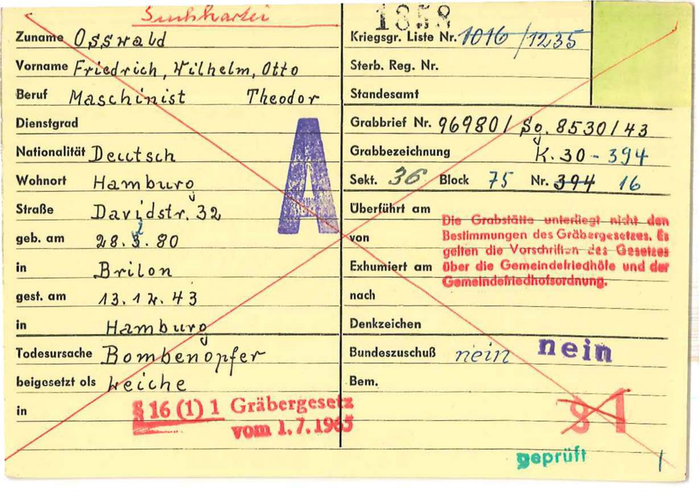 Suchkartei
1358
Zuname Osswald
Vorname Friedrich, Wilhelm, Otto
Beruf Maschinist Theodor
Dienstgrad
Nationalität Deutsch
Wohnort Hamburg
Straße Davidstr. 32
geb. am 28. 80
in Brilon
gest. am 13.12.43
in Hamburg
Todesursache Bombenopfer
beigesetzt als Leiche
in
§ 16 (1) 1 Gräbergesetz
vom 1.7.1965
A
Kriegsgr. Liste Nr. 1016/1235
Sterb. Reg. Nr.
Standesamt
Grabbrief Nr. 969801 Sg. 8530/43
Grabbezeichnung K. 30-394
Sekt. 36 Block 75 Nr. 394 16
Überführt am
von
Exhumiert am
nach
Die Grabstätte unterliegt nicht den
Bestimmungen des Gräbergesetzes. Es
gelten die Vorschriften des Gesetzes
über die Gemeindefriedhöfe und der
Gemeindefriedhofsordnung.
Denkzeichen
Bundeszuschuß nein nein
Bem.
§ 1
geprüft
1